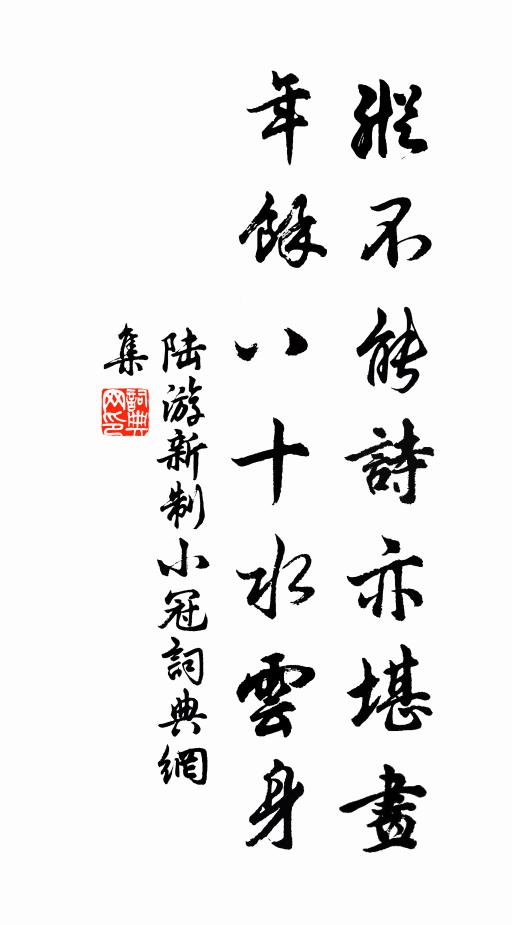 縱不能詩亦堪畫
年餘八十水雲身
陆游新制小冠詞典網
集
詞典
网印